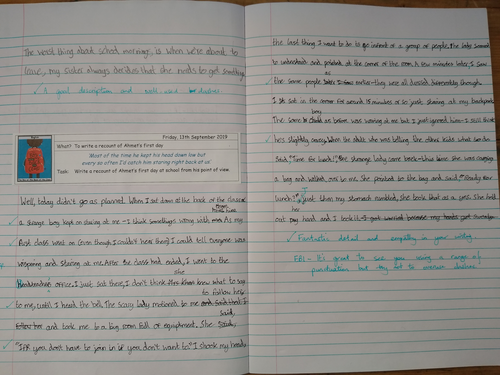 The worst thing about school mornings, is when we're about to
leave, my sister always decides that she needs to get something
A good description and well used dashes
Friday, 13th September 2019
What? To write a recount of Ahmet's first day
Most of the time he kept his head down low but
every so often I'd catch him staring right back at us
Task: Write a recount of Ahmet's day at school from his point of view.
Well, today didn't go as planned. When I sat down at the back of the class
a strange boy kept on staring at me - I think something's wrong with As my
first class went on (even though I couldn't hear them) I could tell everyone was
whispering and staring at me. After the class had ended, I went to the
she
office. I just sat there, I don't think knew what to say
to follow her
to me, until I heard the bell. The scary lady motioned to me
said,
and took me to a big room full of equiptment. She
you dont have to join in if you don't want to" I shook my head,
the last thing I want to do is go infront of a group of people. The lady seemed
to understand and pointed at the corner of the room. A few minutes later, I saw
as
the same people earlier - they were all dressed
I sat in the corner for around 15 minutes or so just staring at my backpack
boy
The same was waving at me but I just ignored him - I still think
he's slightly crazy. When the
said, "Time for lunch!", the strange lady came back - this time she was carrying
a bag and walked over to me. She pointed to the bag and said, "Ready for
lunch?", just then my stomach rumbled, she took that as a yes. She held
her
out hand and I took it.
Fantastic detail and empathy in your writing
EBI - It's great to see you using a range of
punctuation but try not to overuse dashes.